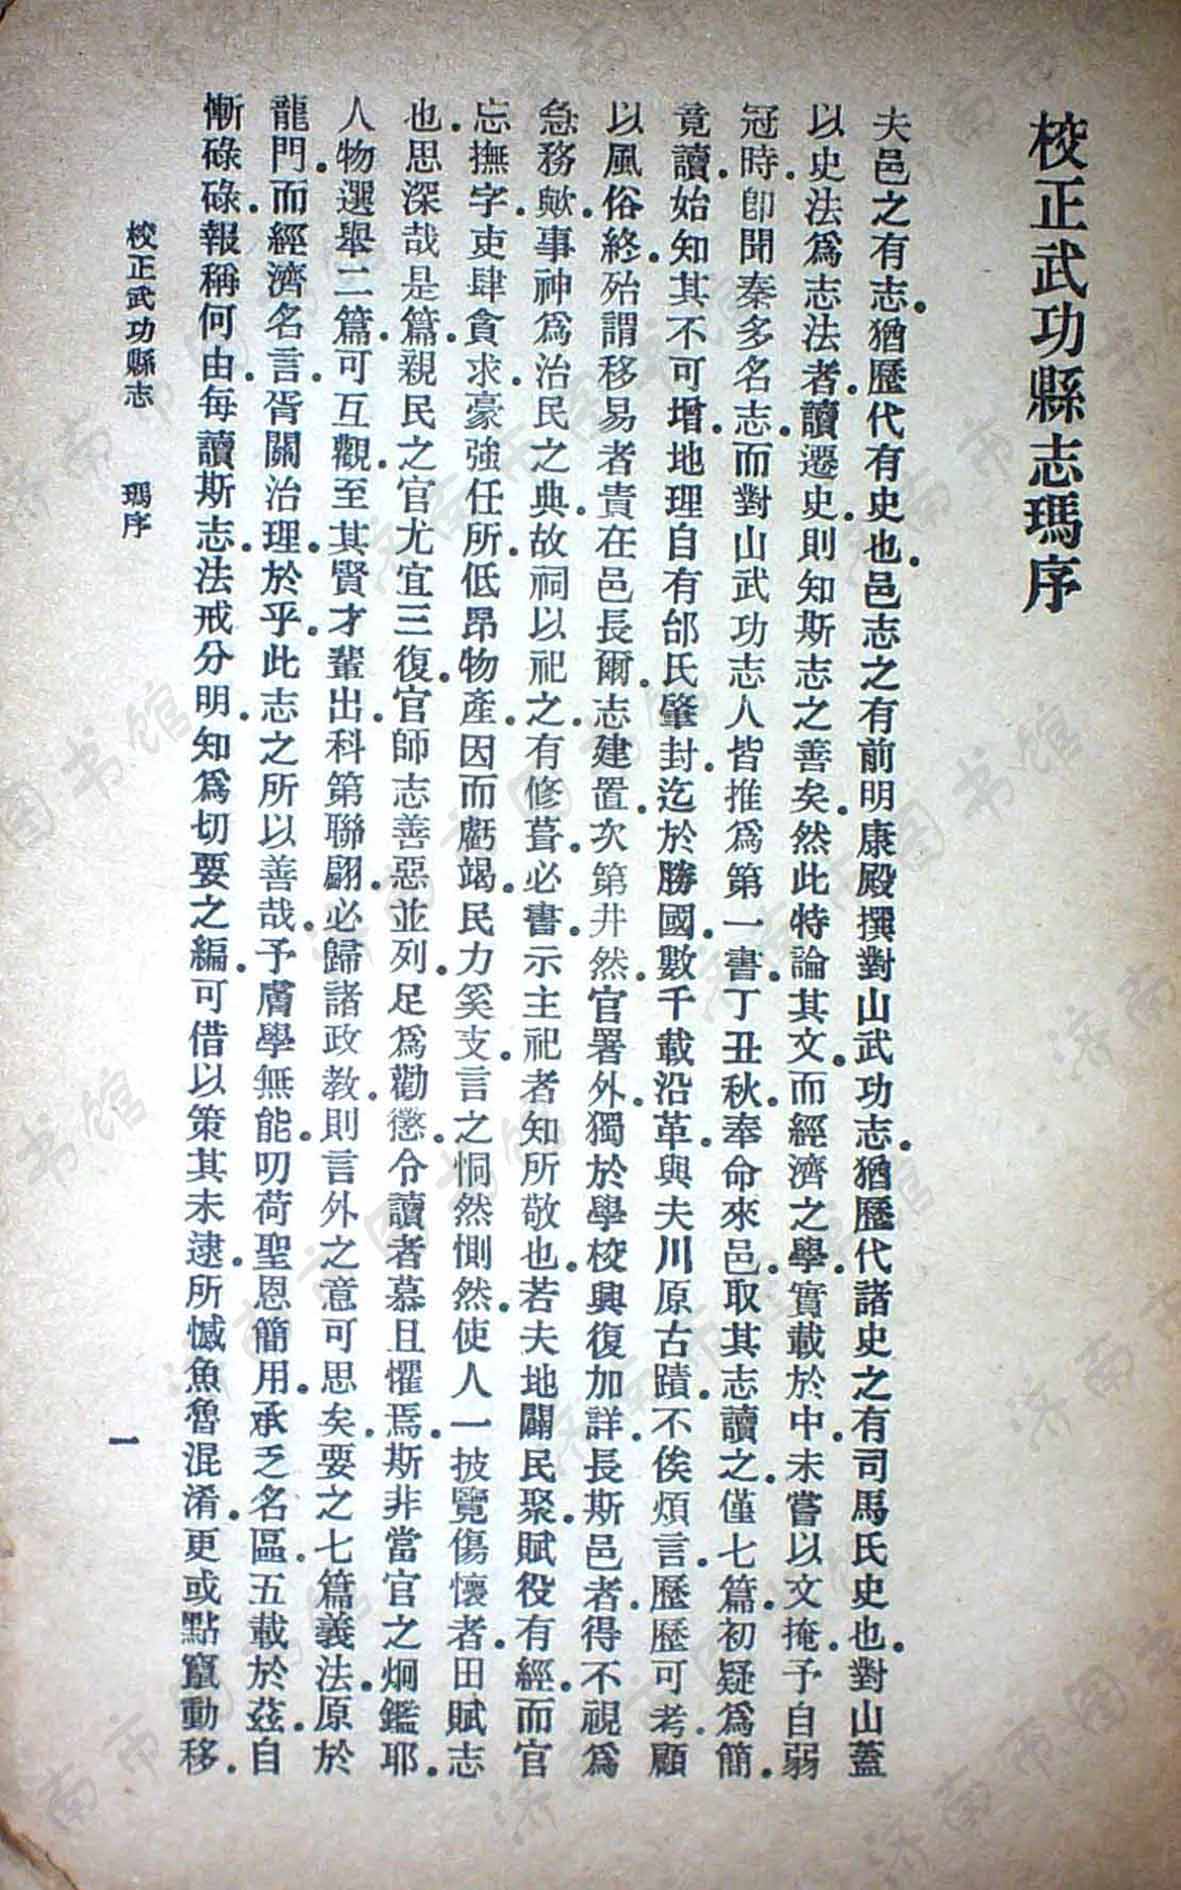 校正武功縣志瑪序
夫邑之有志。猶歷代有史也。邑志之有前明康殿撰對山武功志。猶歷代諸史之有司馬氏史也。對山蓋
以史法爲志法者。讀遷史。則知斯志之善矣。然此特論其文。而經濟之學。實載於中。未嘗以文掩。予自弱
冠時。卽聞秦多名志。而對山武功志人皆推爲第一書。丁丑秋。奉命來邑。取其志讀之。僅七篇。初疑爲簡。
竟讀。始知其不可增。地理自有邰氏肇封。迄於勝國。數千載沿革。與夫川原古蹟。不俟煩言。歷歷可考。顧
以風俗終。殆謂移易者貴在邑長爾。志建置。次第井然。官署外。獨於學校興復加詳。長斯邑者。得不視爲
急務歟。事神爲治民之典。故祠以祀之。有修葺。必書。示主祀者知所敬也。若夫地闢民聚。賦役有經。而官
忘撫字。吏肆貪求。豪強任所。低昂物產。因而虧竭。民力奚支。言之恫然惻然。使人一披覽傷懷者。田賦志
也。思深哉是篇。親民之官尤宜三復。官師志善惡並列。足爲勸懲。令讀者慕且懼焉。斯非當官之炯鑑耶。
人物選舉二篇。可互觀。至其賢才輩出。科第聯翩。必歸諸政教。則言外之意可思矣。要之七篇義法。原於
龍門。而經濟名言。胥關治理。於乎。此志之所以善哉。予膚學無能。叨荷聖恩簡用。承乏名區。五載於茲。自
慚碌碌。報稱何由。每讀斯志。法戒分明。知爲切要之編。可借以策其未逮。所憾魚魯混淆。更或點竄動移。
校正武功縣志　瑪序
一
济南市图书馆